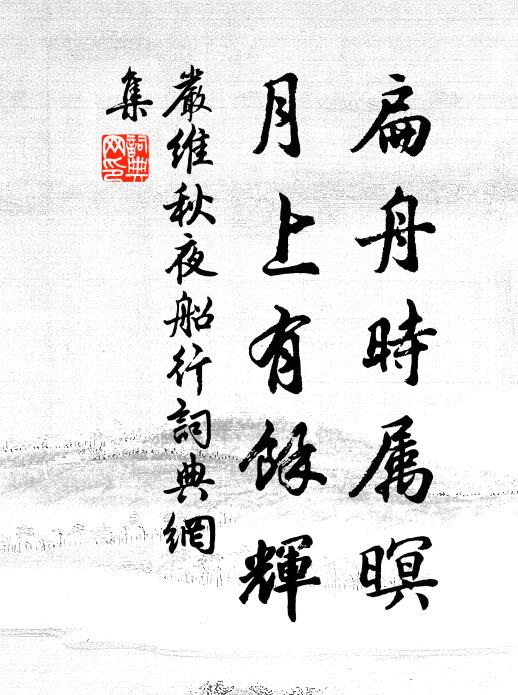 扁舟時属暝
月上有餘輝
嚴維秋夜船行詞典網
集
詞典网印